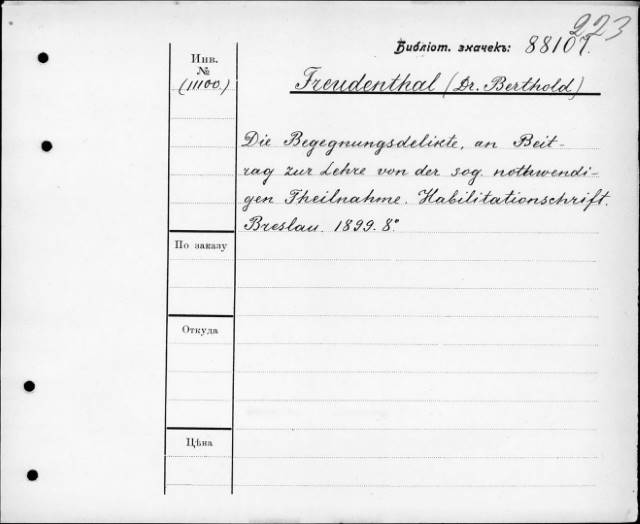 223
Библіот. значекъ: 88107.
Инв.
№
(11100.)
Freudenthal (Dr. Berthold)
Die Begegnungsdelikte, an Beit-
rag zur Lehre von der sog. nothwendi-
gen Theilnahme. Habilitationschrift.
Breslau. 1899. 8°
По заказу
Откуда
Цѣна